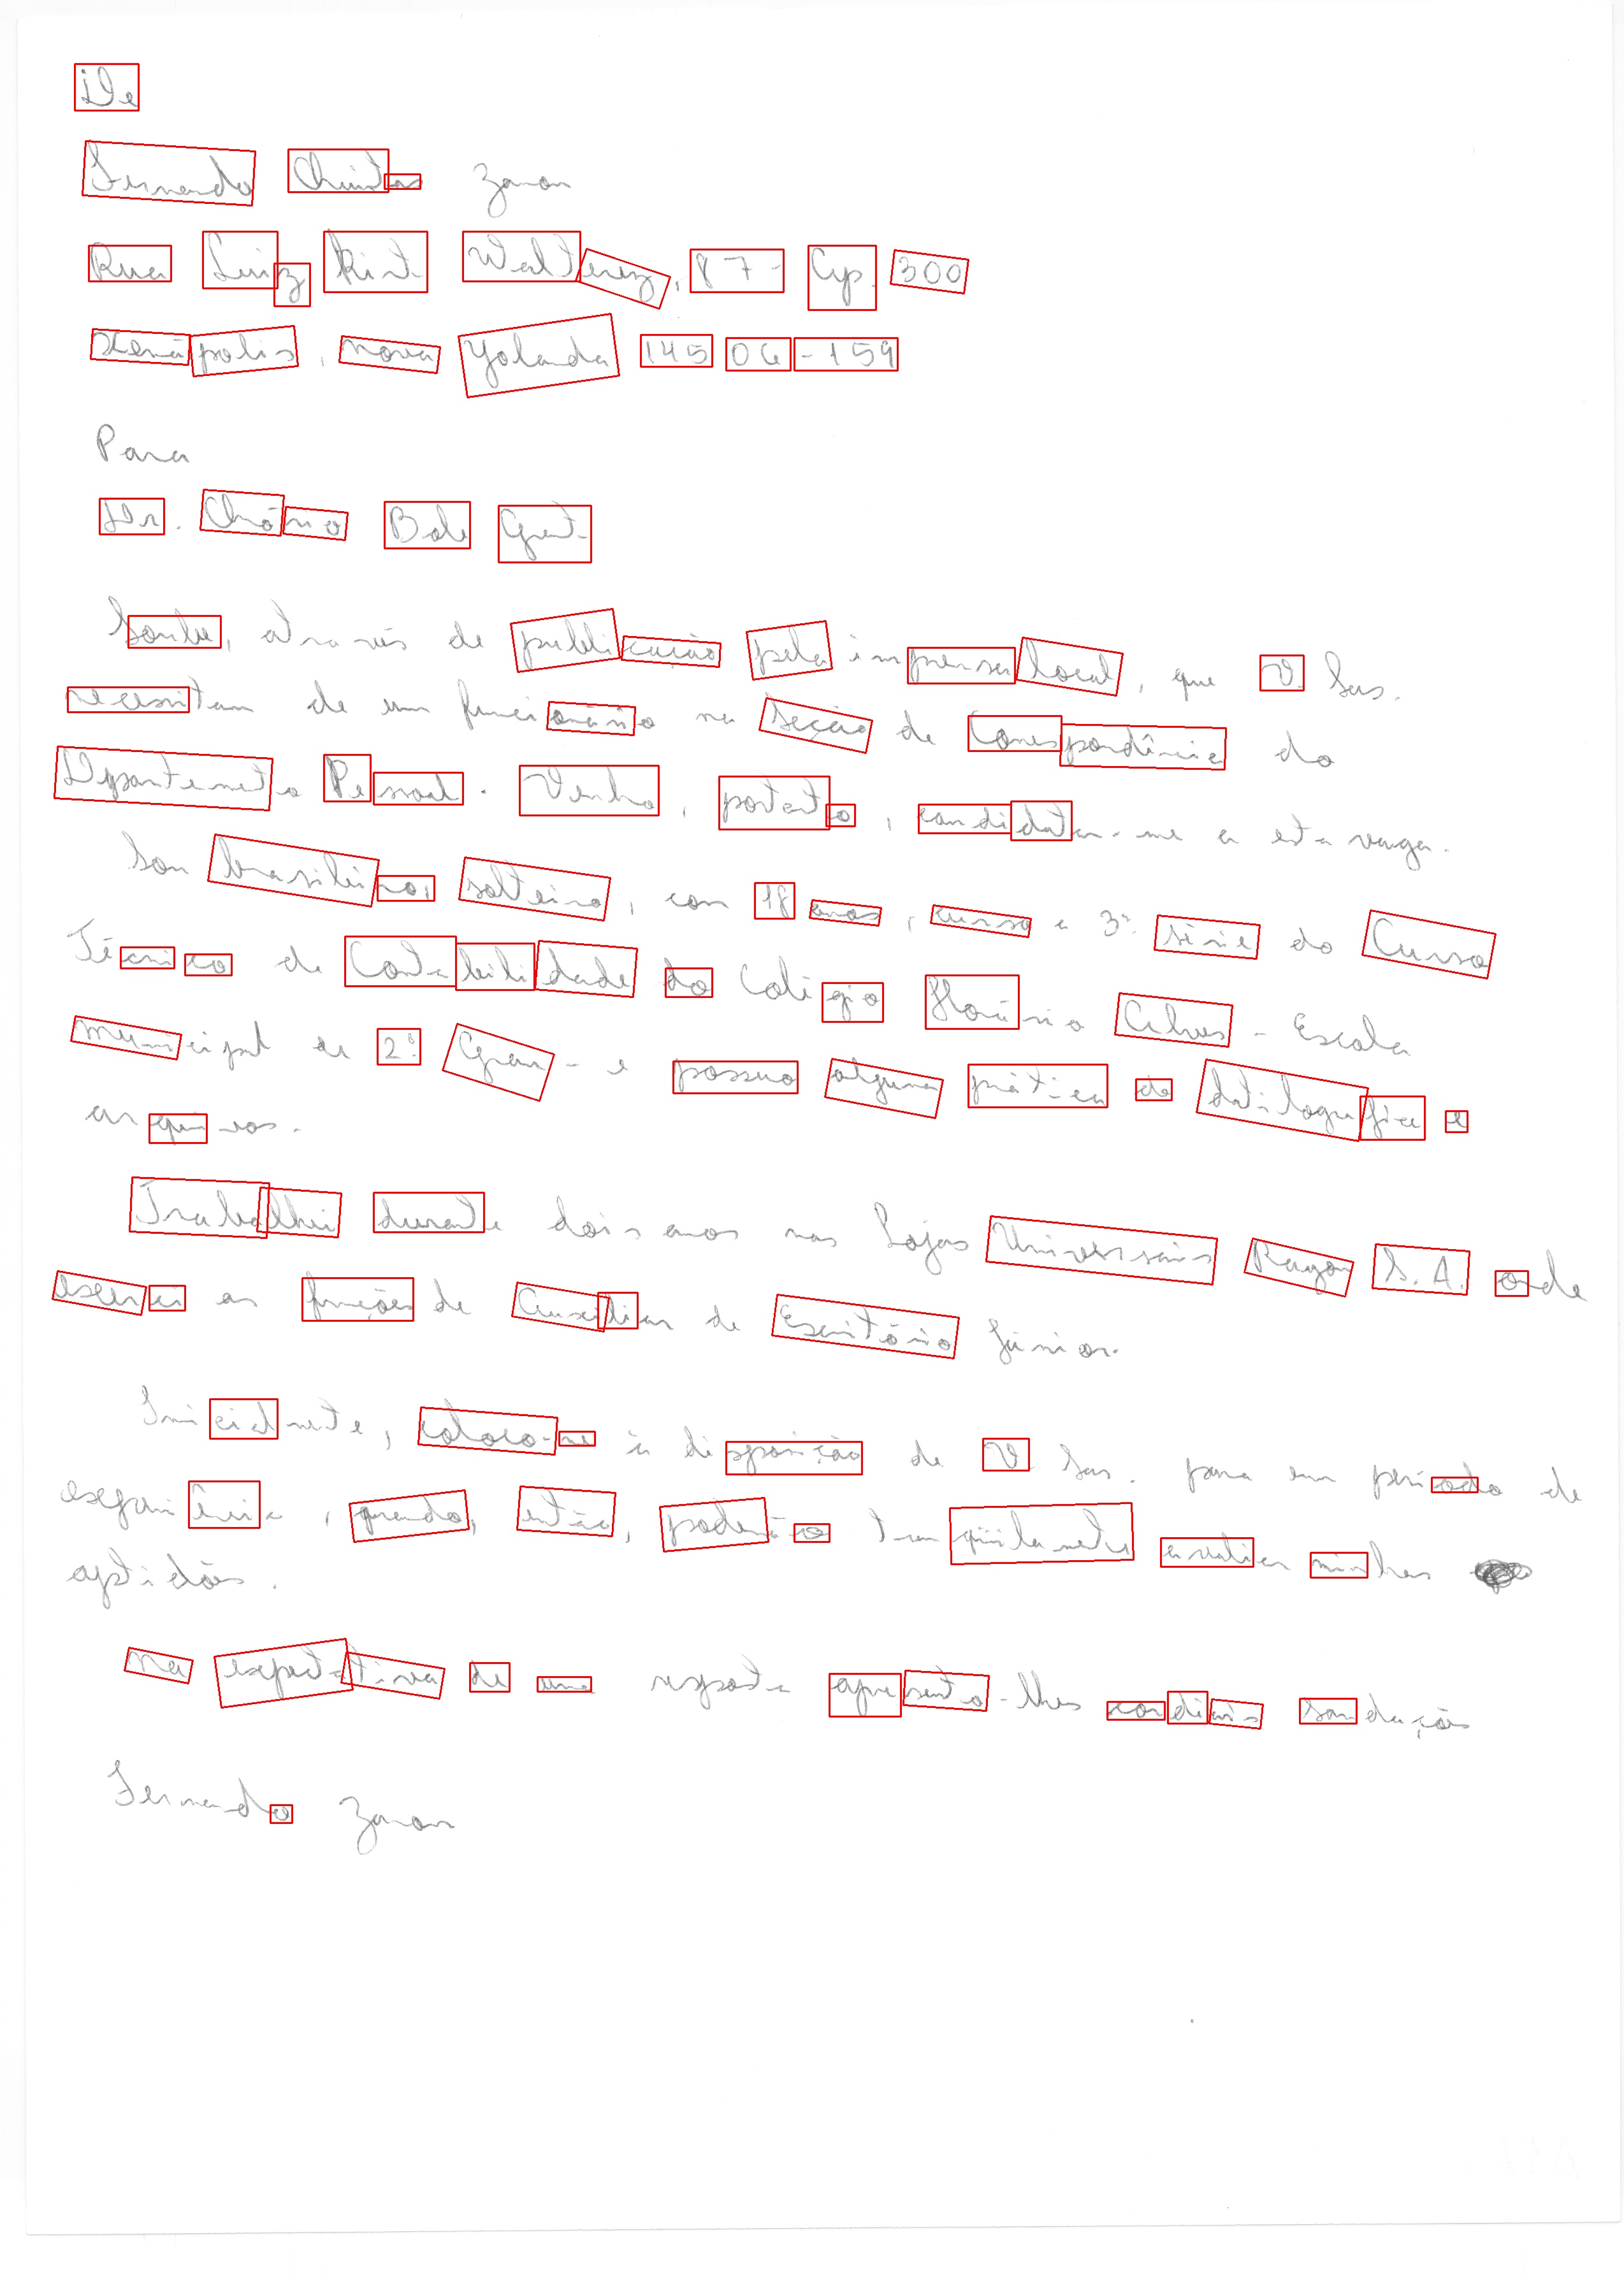 De
Fernando Chintas Zanon
Rua Luiz Kint Walterez, 87 - Cyp. 300
Xenópolis, nova Yolanda 14506-159
Para
Dr. Chório Bole Gret
Soube, através de publicação pela imprensa local, que V. Sas.
necessitam de um funcionário na Seção de Correspondência do
Departamento Pessoal. Venho, portanto, candidatar-me a esta vaga.
Sou brasileiro, solteiro, com 18 anos, curso a 3ª série do Curso
Técnico de Contabilidade do Colégio Horácio Alves - Escola
Municipal de 2º Grau - e possuo alguma prática de datilografia e
arquivos.
Trabalhei durante dois anos nas Lojas Universais Rayon S. A. onde
exerci as funções de Auxiliar de Escritório Júnior.
Inicialmente, coloco-me à disposição de V. Sas. para um período de
experiência, quando, então, poderão tranqüilamente avaliar minhas
aptidões.
Na expectativa de uma resposta apresento-lhes cordiais saudações
Fernando Zanon